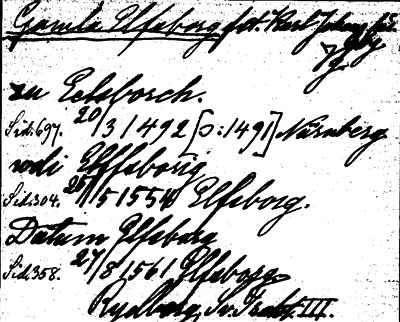 Gamla Elfsborg fst. Karl Johans fs.
Gbg.
zu Eelsborch.
Sid. 697. 20/3 1492 [ɔ: 1491] Nürnberg
wdi Elffsborg
Sid. 304. 25/5 1554 Elfsborg.
Datum Elfsborg
Sid. 358. 27/8 1561 Elfsborg.
Rydberg, Sv. Trakt. III.